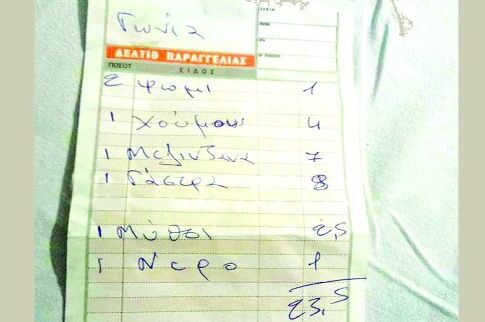 Γωνία
ΔΕΛΤΙΟ ΠΑΡΑΓΓΕΛΙΑΣ
ΠΟΣΟΤ ΕΙΔΟΣ
2 Ψωμι 1
1 Χούμους 4
1 Μελιντζανα 7
1 Γάστρα 8
1 Μύθοι 2,5
1 Νερο 1
23,5